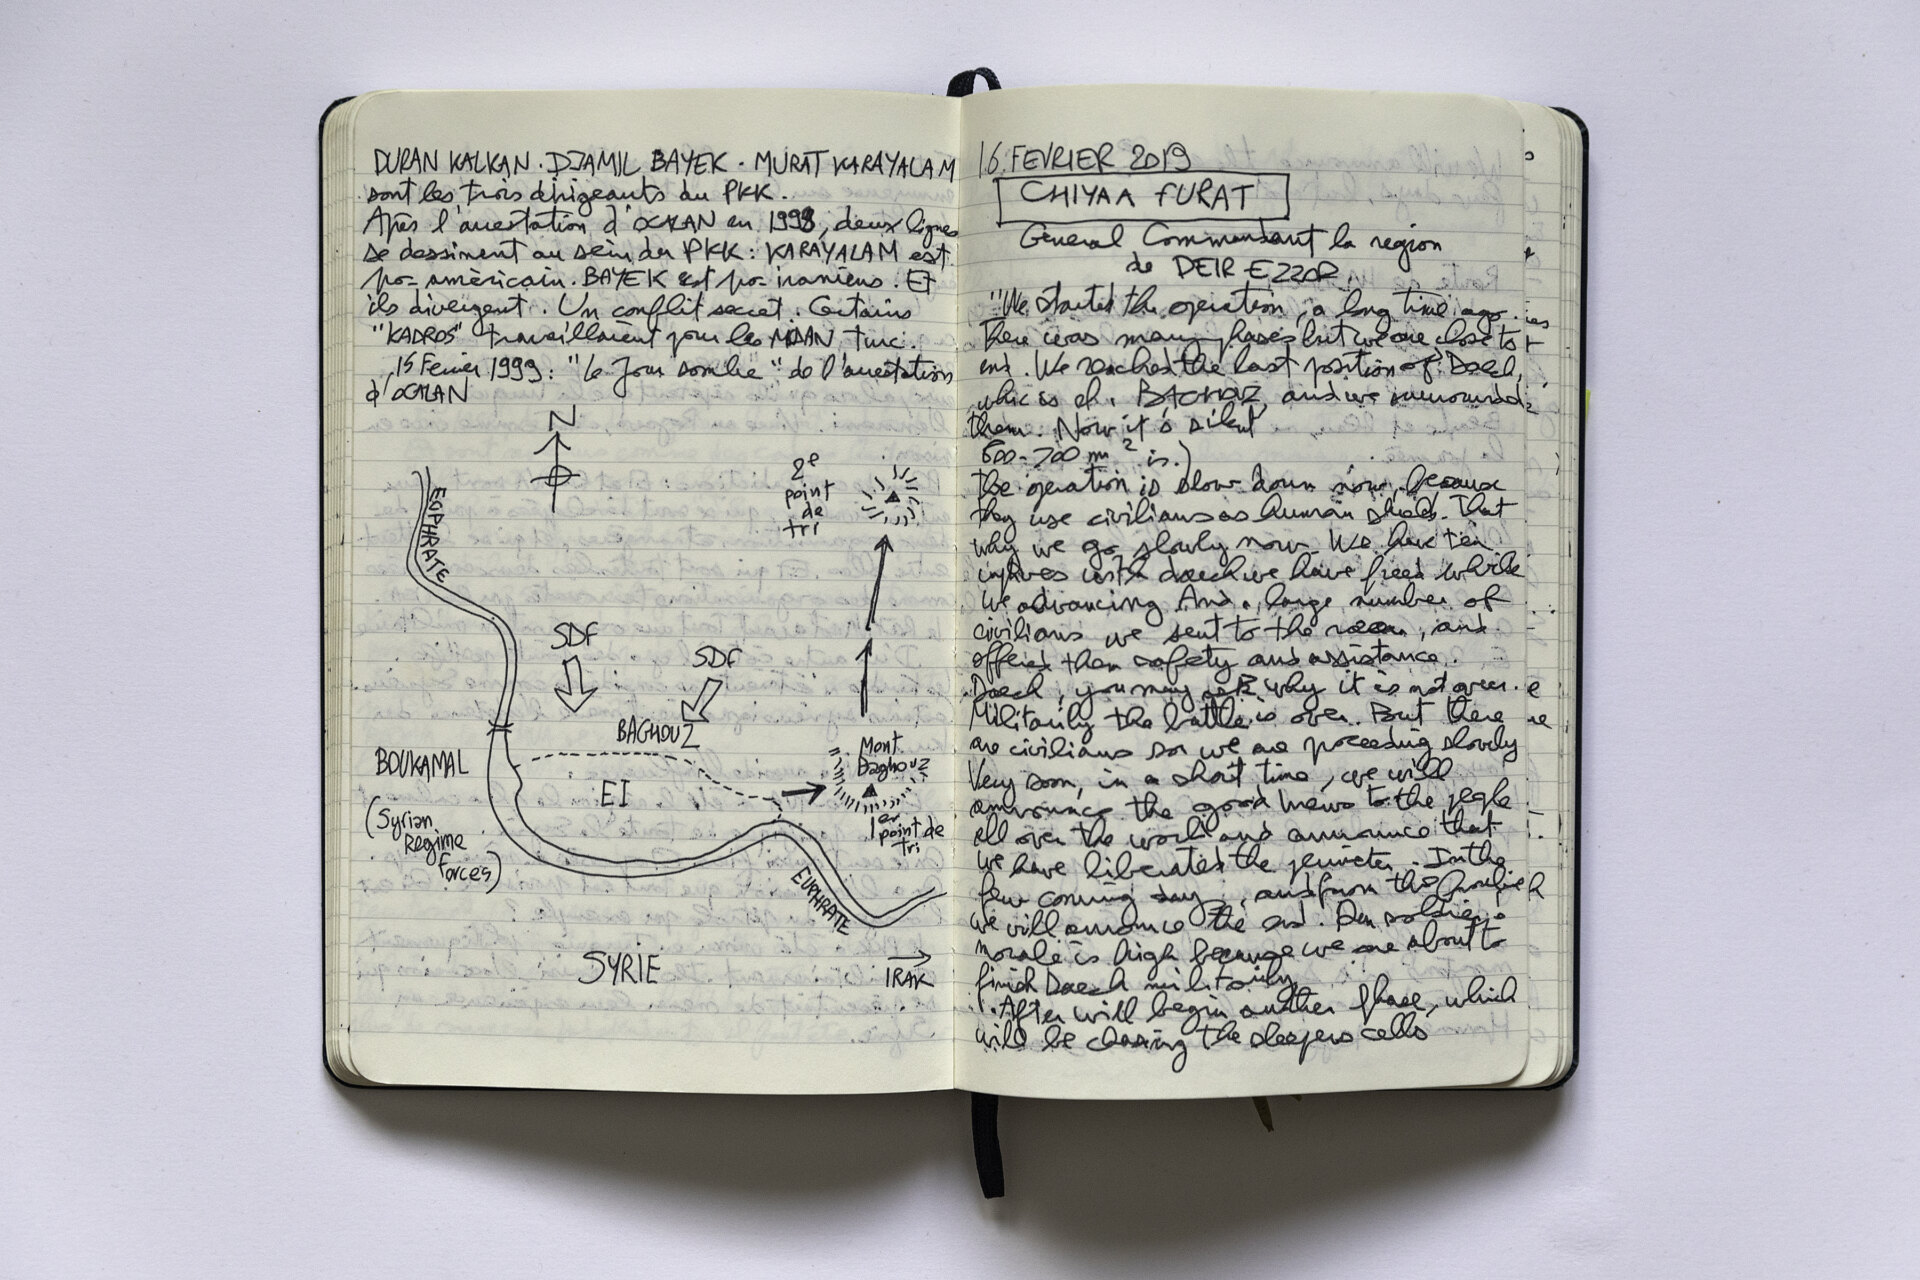 DURAN KALKAN. DJAMIL BAYEK. MURAT KARAYALAM
sont les trois dirigeants du PKK.
Après l'arrestation d'OCALAN en 1998, deux lignes
se dessinent au sein du PKK: KARAYALAM est
pro-américain. BAYEK est pro-iraniens. Et
ils divergent. Un conflit secret. Certains
"KADROS" travaillaient pour les turc.
15 Fevrier 1999: "Le Jour sombre" de l'arrestation
d'OCALAN
N
2e
point
de
tri
EUPHRATE
SDF
SDF
BAGHOUZ
BOUKAMAL
EI
Mont
Baghouz
1er
point de
tri
(Syrian
Regime
forces)
EUPHRATE
SYRIE
→
IRAK
16. FEVRIER 2019
CHIYAA FURAT
General Commandant la region
de DEIR EZZOR
"We started the operation, a long time ago.
There was many phases but we are close to
end. We reached the last position of Daech,
which is BAGHOUZ and we surrounded
them. Now it's silent
600-700 m² is.)
The operation is slow down now, because
they use civilians as human shields. That
why we go slowly now. We have
with daech we have freed while
we advancing And a large number of
civilians we sent to the, and
offered them safety and assistance.
Daech, you may ask why it is not over.
Militarily the battle is over. But there
are civilians so we are proceeding slowly
Very soon, in a short time, we will
announce the good news to the people
all over the world and announce that
we have liberated the. In the
few coming day, and from the
we will announce the end. Our soldiers
morale is high because we are about to
finish Daech militarily
. After will begin another phase, which
will be chasing the sleepers cells